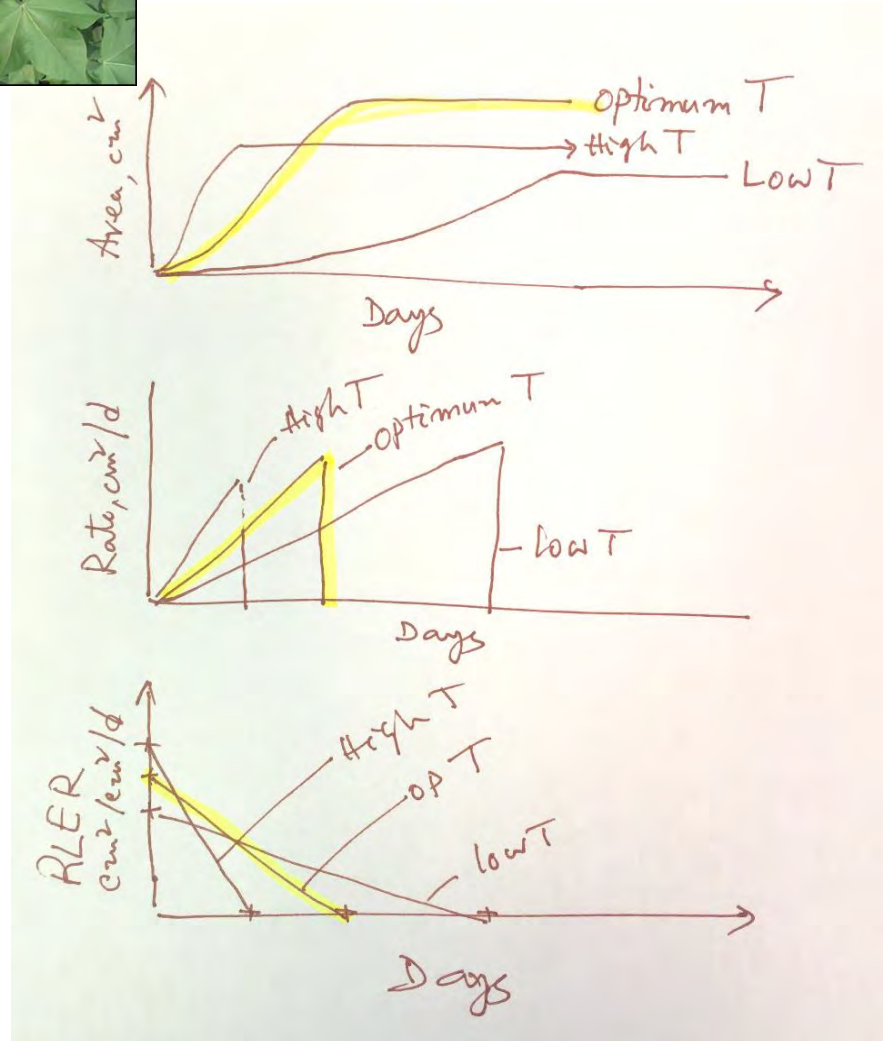 Area, cm²
Optimum T
High T
Low T
Days
Rate, cm²/d
High T
Optimum T
Low T
Days
RLER
cm²/cm²/d
High T
OP T
low T
Days